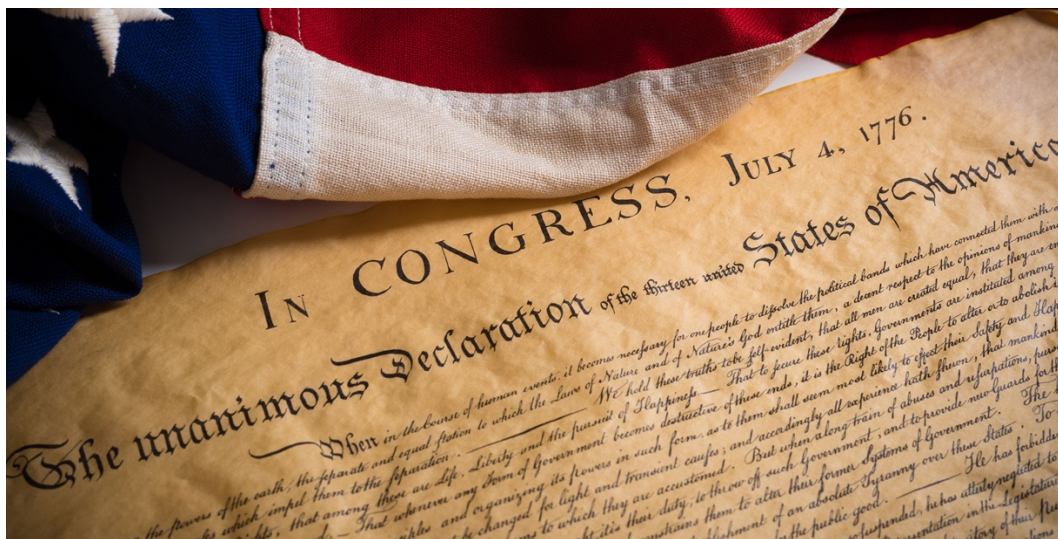 IN CONGRESS, JULY 4, 1776.
The unanimous Declaration of the thirteen united States of America
When in the Course of human events, it becomes necessary for one people to dissolve the political bands which have connected them with
the powers of the earth, the separate and equal station to which the Laws of Nature and of Nature's God entitle them, a decent respect to the opinions of mankind
which impel them to the separation. We hold these truths to be self-evident, that all men are created equal, that they are
rights, that among these are Life, Liberty and the pursuit of Happiness. — That to secure these rights, Governments are instituted among
— That whenever any Form of Government becomes destructive of these ends, it is the Right of the People to alter or to abolish
and organizing its powers in such form, as to them shall seem most likely to effect their Safety and
be changed for light and transient causes; and accordingly all experience hath shewn, that mankind
to which they are accustomed. But when a long train of abuses and usurpations,
it is their duty, to throw off such Government, and to provide new Guards for
them to alter their former Systems of Government. The
of an absolute Tyranny over these States. To
the public good. He has forbidden
suspended, he has utterly neglected to
in the Legislature